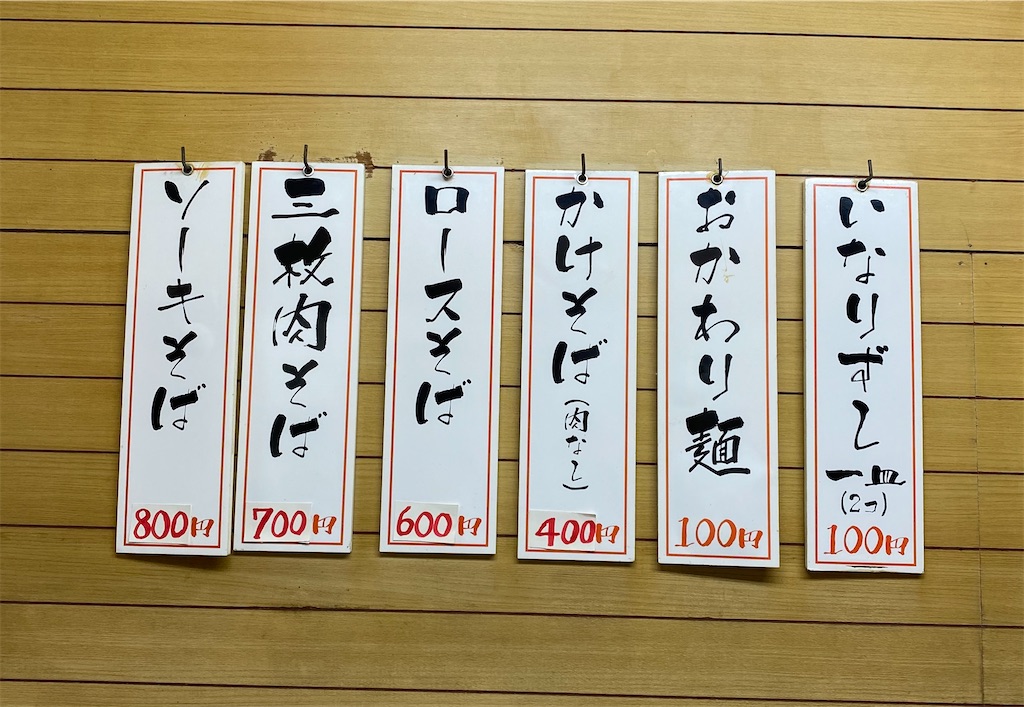 ソーキそば
800円
三枚肉そば
700円
ロースそば
600円
かけそば(肉なし)
400円
おかわり麺
100円
いなりずし
一皿
(2コ)
100円